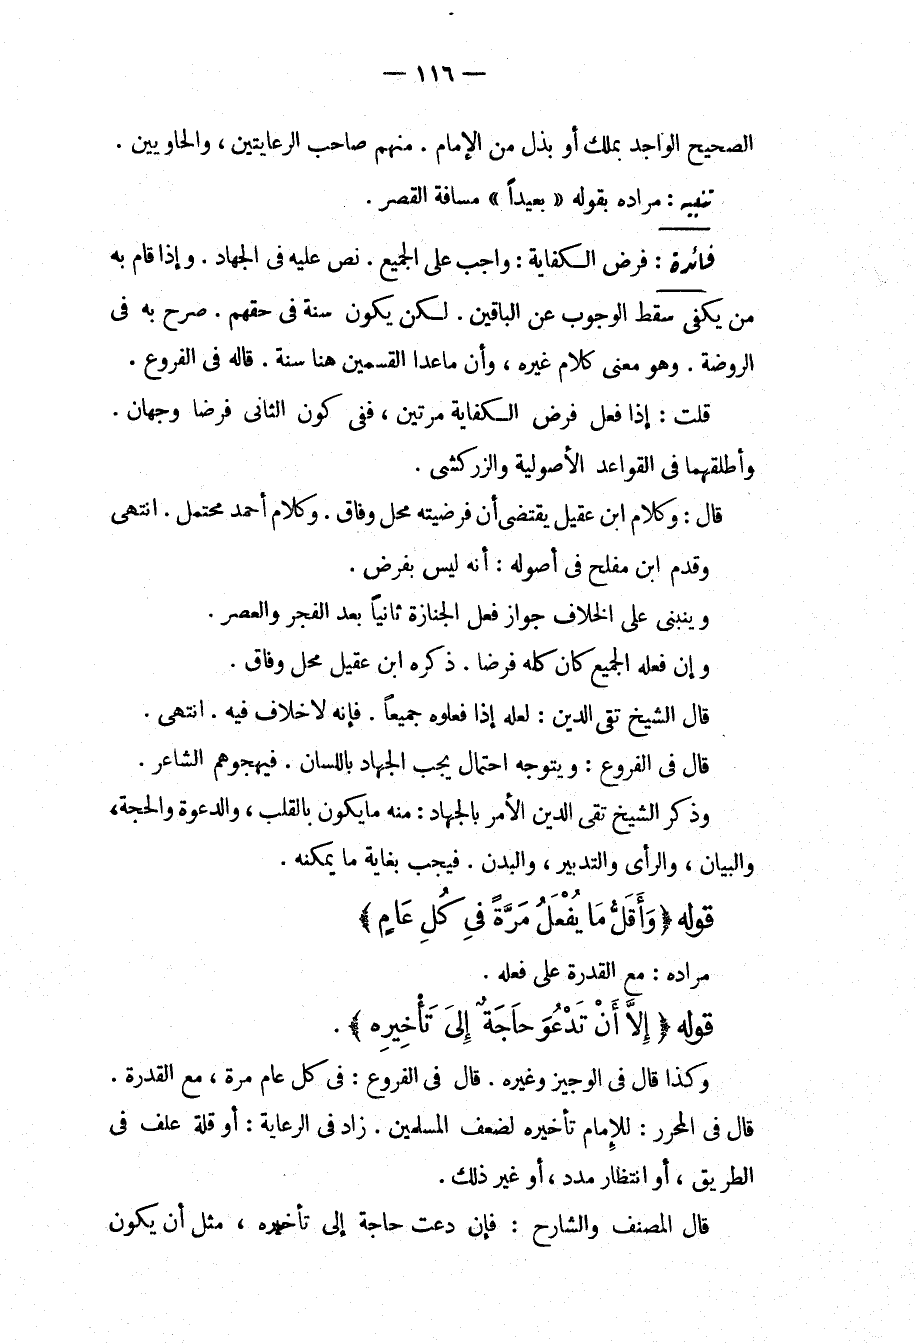 — ١١٦ —
الصحيح الواجد بملك أو بذل من الإمام . منهم صاحب الرعايتين ، والحاويين .
تنبيه : مراده بقوله « بعيداً » مسافة القصر .
فائدة : فرض الكفاية : واجب على الجميع . نص عليه فى الجهاد . وإذا قام به
من يكفى سقط الوجوب عن الباقين . لكن يكون سنة فى حقهم . صرح به فى
الروضة . وهو معنى كلام غيره ، وأن ماعدا القسمين هنا سنة . قاله فى الفروع .
قلت : إذا فعل فرض الكفاية مرتين ، ففى كون الثانى فرضا وجهان .
وأطلقهما فى القواعد الأصولية والزركشى .
قال : وكلام ابن عقيل يقتضى أن فرضيته محل وفاق . وكلام أحمد محتمل . انتهى
وقدم ابن مفلح فى أصوله : أنه ليس بفرض .
وينبنى على الخلاف جواز فعل الجنازة ثانياً بعد الفجر والعصر .
وإن فعله الجميع كان كله فرضا . ذكره ابن عقيل محل وفاق .
قال الشيخ تقى الدين : لعله إذا فعلوه جميعاً . فإنه لاخلاف فيه . انتهى .
قال فى الفروع : ويتوجه احتمال يجب الجهاد باللسان . فيهجوهم الشاعر .
وذكر الشيخ تقى الدين الأمر بالجهاد : منه مايكون بالقلب ، والدعوة والحجة ،
والبيان ، والرأى والتدبير ، والبدن . فيجب بغاية ما يمكنه .
قوله ﴿ وَأَقَلُّ مَا يُفْعَلُ مَرَّةً فِي كُلِ عَامٍ ﴾
مراده : مع القدرة على فعله .
قوله ﴿ إِلاَّ أَنْ تَدْعُوَ حاَجَةٌ إِلىَ تَأْخِيرِه ﴾ .
وكذا قال فى الوجيز وغيره . قال فى الفروع : فى كل عام مرة ، مع القدرة .
قال فى المحرر : للإمام تأخيره لضعف المسلمين . زاد فى الرعاية : أو قلة علف فى
الطريق ، أو انتظار مدد ، أو غير ذلك .
قال المصنف والشارح : فإن دعت حاجة إلى تأخيره ، مثل أن يكون